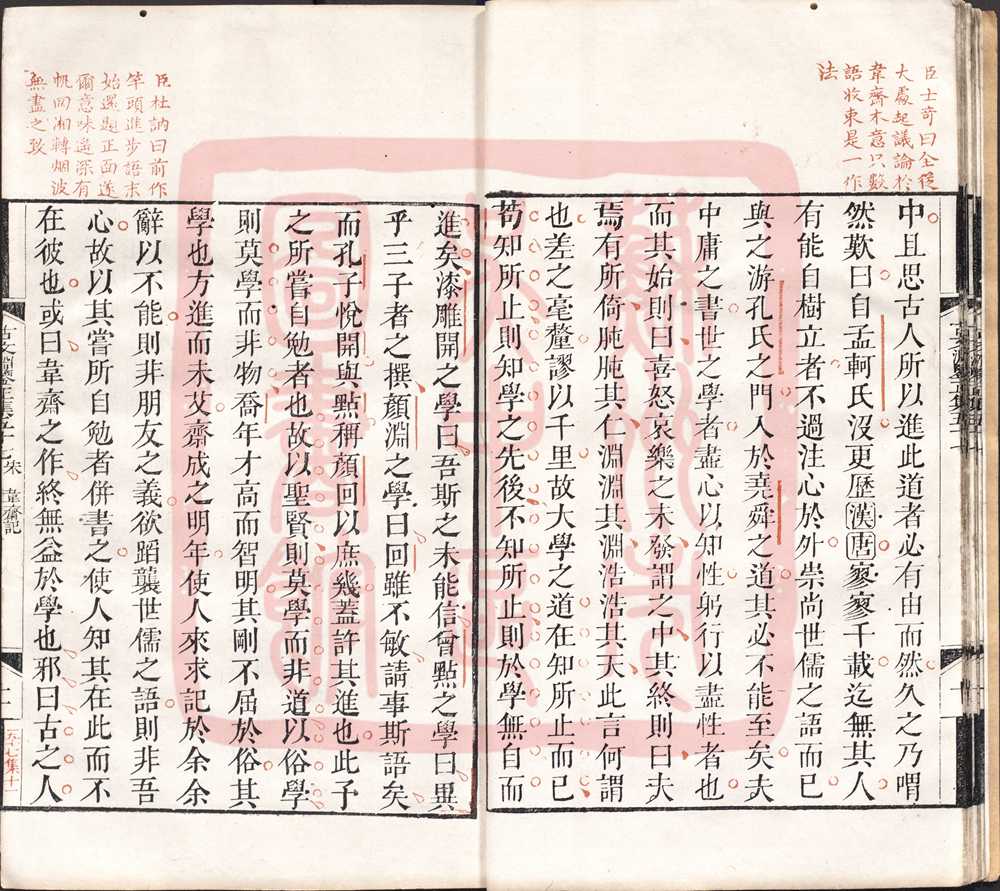 臣士奇曰全從
大處起議論於
韋齋本意只數
語收束是一作
法
中且思古人所以進此道者必有由而然久之乃喟
然歎曰自孟軻氏沒更歷漢唐寥寥千載迄無其人
有能自樹立者不過注心於外崇尚世儒之語而已
與之游孔氏之門入於堯舜之道其必不能至矣夫
中庸之書世之學者盡心以知性躬行以盡性者也
而其始則曰喜怒哀樂之未發謂之中其終則曰夫
焉有所倚肫肫其仁淵淵其淵浩浩其天此言何謂
也差之毫釐謬以千里故大學之道在知所止而已
苟知所止則知學之先後不知所止則於學無自而
臣杜訥曰前作
竿頭進步語末
始還題正面遂
爾意味遥深有
帆回湘轉烟波
無盡之致
進矣漆雕開之學曰吾斯之未能信曾點之學曰異
乎三子者之撰顏淵之學曰回雖不敏請事斯語矣
而孔子悅開與點稱顏回以庶幾蓋許其進也此予
之所嘗自勉者也故以聖賢則莫學而非道以俗學
則莫學而非物喬年才高而智明其剛不屈於俗其
學也方進而未艾齋成之明年使人來求記於余余
辭以不能則非朋友之義欲蹈襲世儒之語則非吾
心故以其嘗所自勉者併書之使人知其在此而不
在彼也或曰韋齋之作終無益於學也邪曰古之人
古文淵鑒正集五十七 朱 韋齋記